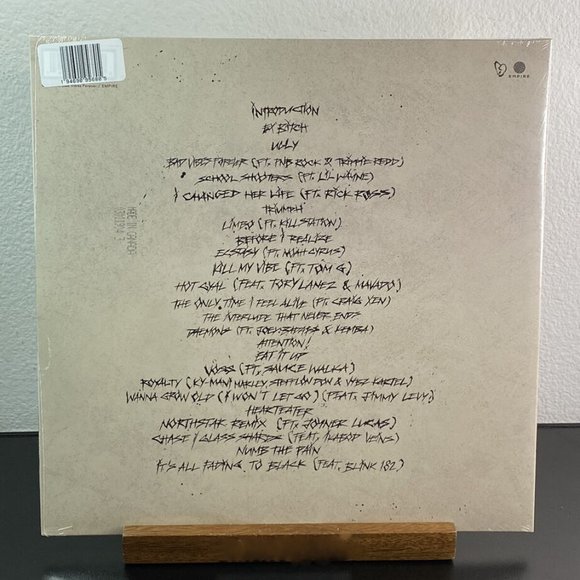 EMPIRE
INTRODUCTION
EY BITCH
UGLY
BAD VIBES FOREVER (FT. PNB ROCK & TRIPPIE REDD)
SCHOOL SHOOTERS (FT. LIL WAYNE)
I CHANGED HER LIFE (FT. RICK ROSS)
TRIUMPH
LIMBO (FT. KILLSTATION)
BEFORE I REALIZE
ECSTASY (FT. NOAH CYRUS)
KILL MY VIBE (FT. TOM G)
HOT GYAL (FEAT. TORY LANEZ & MAVADO)
THE ONLY TIME I FEEL ALIVE (FT. CRAIG XEN)
THE INTERLUDE THAT NEVER ENDS
DAEMONS (FT. JOEY BADA$$ & KEMBA)
ATTENTION!
EAT IT UP
VOSS (FT. SAUCE WALKA)
ROYALTY (KY-MANI MARLEY, STEFFLON DON & VYBZ KARTEL)
WANNA GROW OLD (I WON'T LET GO) (FEAT. JIMMY LEVY)
HEARTEATER
NORTHSTAR REMIX (FT. JOYNER LUCAS)
CHASE / GLASS SHARDS (FEAT. ICABOD VEINS)
NUMB THE PAIN
IT'S ALL FADING TO BLACK (FEAT. BLINK 182)
MADE IN CANADA